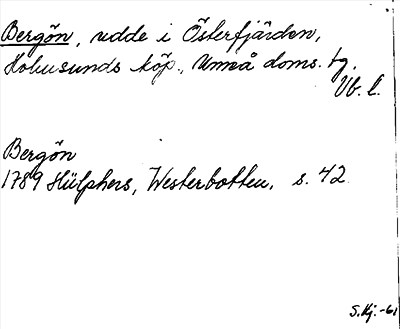 Bergön, udde i Österfjärden,
Holmsunds köp., Umeå doms. tg,
Vb. l.
Bergön
1789 Hülphers, Westerbotten, s. 42
S.Hj.-61